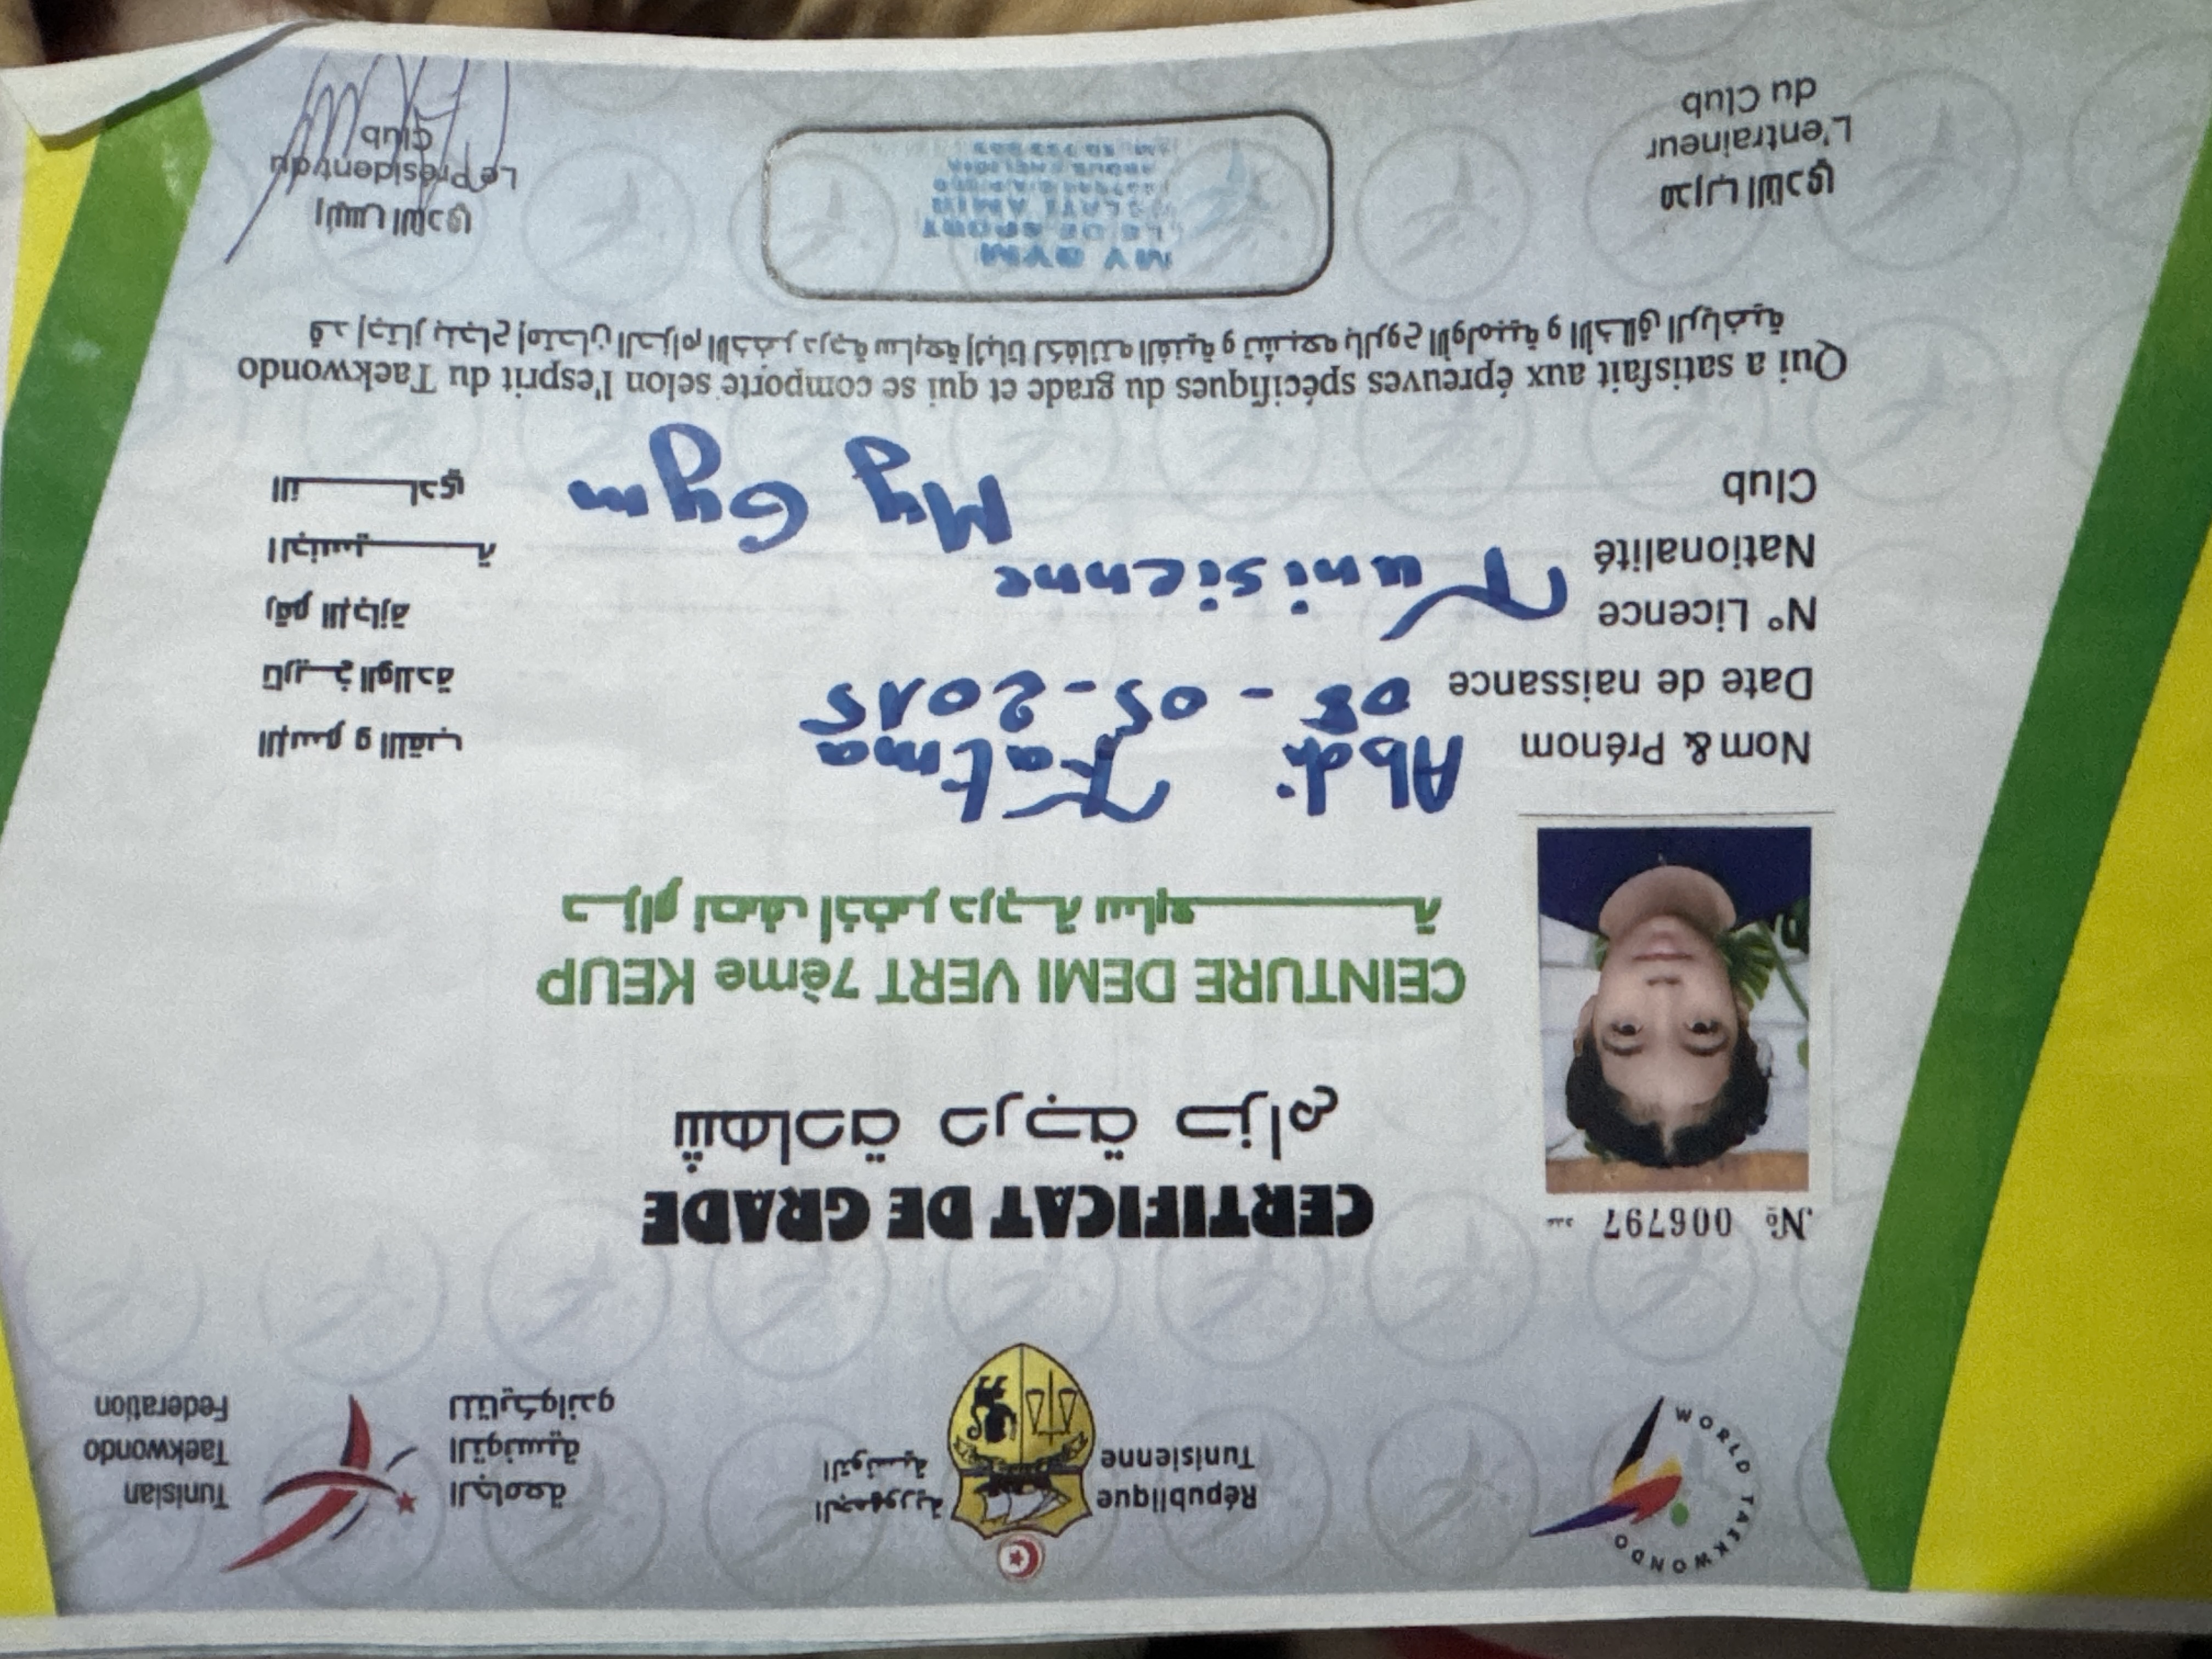 WORLD TAEKWONDO
République
Tunisienne
الجمهورية
التونسية
الجامعة
التونسية
للتايكواندو
Tunisian
Taekwondo
Federation
№ 006797
CERTIFICAT DE GRADE
شهادة درجة حزام
CEINTURE DEMI VERT 7ème KEUP
حزام نصف اخضر درجة سابعة
Nom & Prénom Abdi Fatma الإسم و اللقب
Date de naissance 08 - 05 - 2015 تاريخ الولادة
N° Licence رقم الإجازة
Nationalité Tunisienne الجنسية
Club My Gym النادي
Qui a satisfait aux épreuves spécifiques du grade et qui se comporte selon l'esprit du Taekwondo
قد إجتاز بنجاح إمتحان الحزام الأخضر درجة سابعة إثباتا لكفائته الفنية و تشبعه بالروح الأولمبية و الأخلاق الرياضية
مدرب النادي
L'entraineur
du Club
MY GYM
رئيس النادي
Le Président du
Club